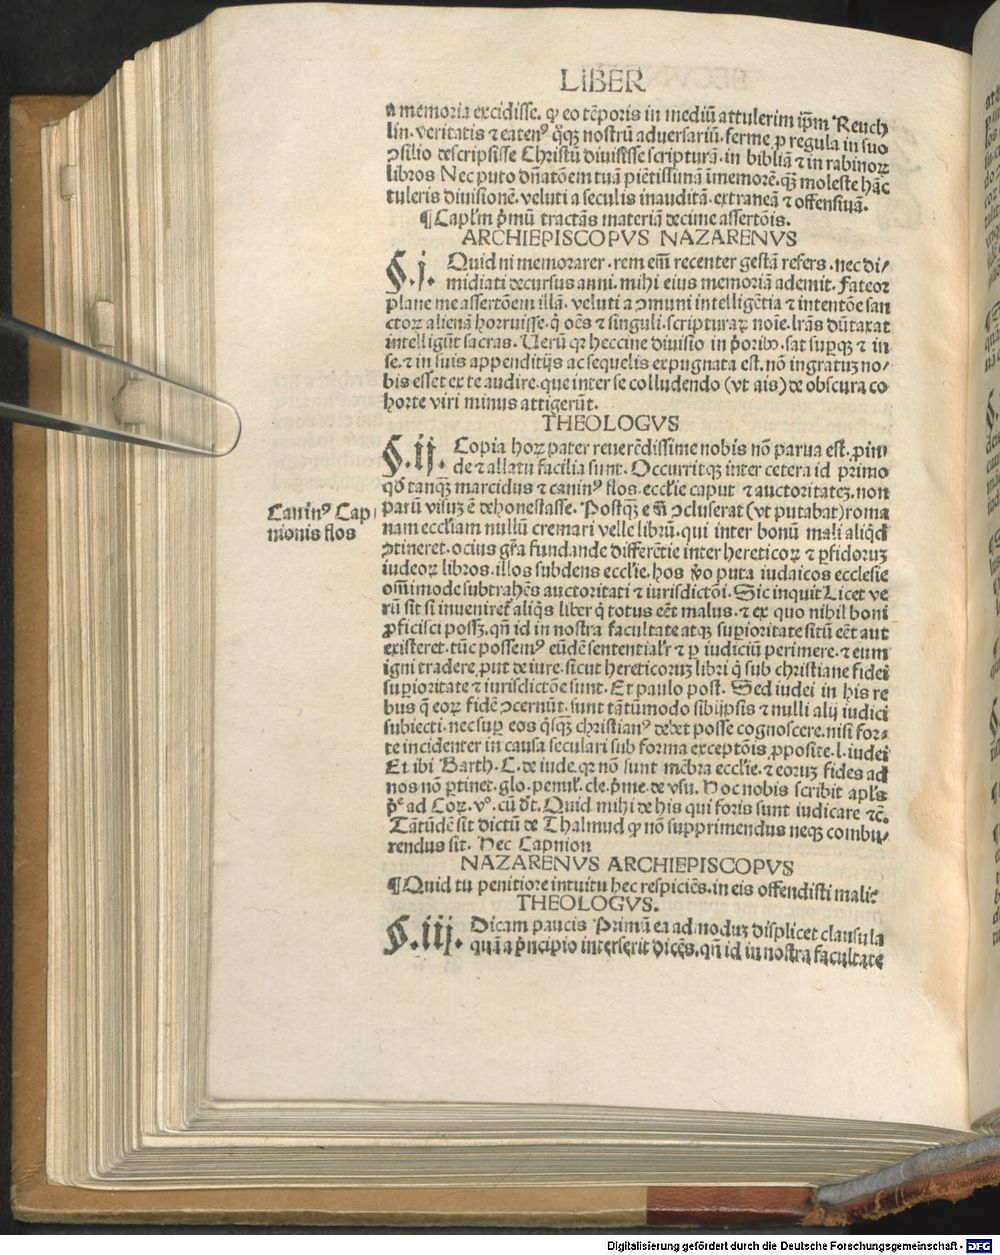 LIBER
a memoria excidisse. ꝙ eo tẽporis in mediũ attulerim ip̃m Reuch
lin. veritatis ⁊ eatenꝰ q̃qꝫ nostrũ aduersariũ. ferme ꝑ regula in suo
ꝯsilio descripsisse Christũ diuisisse scripturã. in bibliã ⁊ in rabinoꝝ
libros Nec puto dñatõem tuã piẽtissimã ĩmemorẽ. qꝫ̃ moleste hãc
tuleris diuisionẽ. veluti a seculis inauditã. extraneã ⁊ offensiuã.
¶ Capl'm p̃mũ tractãs materiã decime assertõis.
ARCHIEPISCOPVS NAZARENVS
§.j. Quid ni memorarer. rem em̃ recenter gestã refers. nec di⸗
midiati decursus anni. mihi eius memoriã ademit. Fateor
plane me assertõem illã. veluti a ꝯmuni intelligẽtia ⁊ intentõe san
ctoꝝ alienã horruisse. q̇ oẽs ⁊ singuli. scripturaꝝ noĩe. lr̃as dũtaxat
intelligũt sacras. Uerũ qꝛ heccine diuisio in p̃oribꝰ. sat suꝑqꝫ ⁊ in
se. ⁊ in suis appenditijs ac sequelis expugnata est. nõ ingratuꝫ no⸗
bis esset ex te audire. que inter se colludendo (vt ais) de obscura co
horte viri minus attigerũt.
THEOLOGVS
§.ij. Copia hoꝝ pater reuerẽdissime nobis nõ parua est. ꝓin⸗
de ⁊ allatu facilia sunt. Occurritqꝫ inter cetera id primo
qd̃ tanqꝫ̃ marcidus ⁊ caninꝰ flos. eccl'ie caput ⁊ auctoritateꝫ. non
parũ visuꝫ ẽ dehonestasse. Postqꝫ̃ em̃ ꝯcluserat (vt putabat) roma
nam eccl'iam nullũ cremari velle librũ. qui inter bonũ mali aliqd̃
ꝯtineret. ocius gr̃a fundande differẽtie inter hereticoꝝ ⁊ ꝑfidoruꝫ
iudeoꝝ libros. illos subdens eccl'ie. hos ṽo puta iudaicos ecclesie
om̃imode subtrahẽs auctoritati ⁊ iurisdictõi. Sic inquit Licet ve
rũ sit si inueniret' aliq̃s liber q̇ totus eẽt malus. ⁊ ex quo nihil boni
ꝓficisci possꝫ. qñ id in nostra facultate atqꝫ suꝑioritate sitũ eẽt aut
existeret. tũc possemꝰ eũdẽ sententialr̃ ⁊ ꝑ iudiciũ perimere. ⁊ eum
igni tradere. put de iure. sicut hereticoruꝫ libri q̇ sub christiane fidei
suꝑioritate ⁊ iurisdictõe sunt. Et paulo post. Sed iudei in his re
bus q̃ eoꝝ fidẽ ꝯcernũt. sunt tãtũmodo sibijpsis ⁊ nulli alij iudici
subiecti. nec suꝑ eos q̇sqꝫ̃ christianꝰ debet posse cognoscere. nisi for⸗
te incidenter in causa seculari sub forma exceptõis ꝓposite. l. iudei
Et ibi Barth. C. de iude. qꝛ nõ sunt mẽbra eccl'ie. ⁊ eoruꝫ fides ad
nos nõ ꝑtinet. glo. penul'. cle. p̃me. de vsu. Hoc nobis scribit apl's
p̃ᵉ ad Coꝝ. vᵒ. cũ d̃t. Quid mihi de his qui foris sunt iudicare ⁊c̃.
Tãtũdẽ sit dictũ de Thalmud ꝙ nõ supprimendus neqꝫ combu⸗
rendus sit. Hec Capnion
NAZARENVS ARCHIEPISCOPVS
¶ Quid tu penitiore intuitu hec respiciẽs. in eis offendisti mali?
THEOLOGVS.
§.iij. Dicam paucis Primũ ea ad moduꝫ displicet clausula
quã a p̃ncipio interserit dicẽs. qñ id in nostra facultate
Caninꝰ Cap
nionis flos
Digitalisierung gefördert durch die Deutsche Forschungsgemeinschaft - DFG